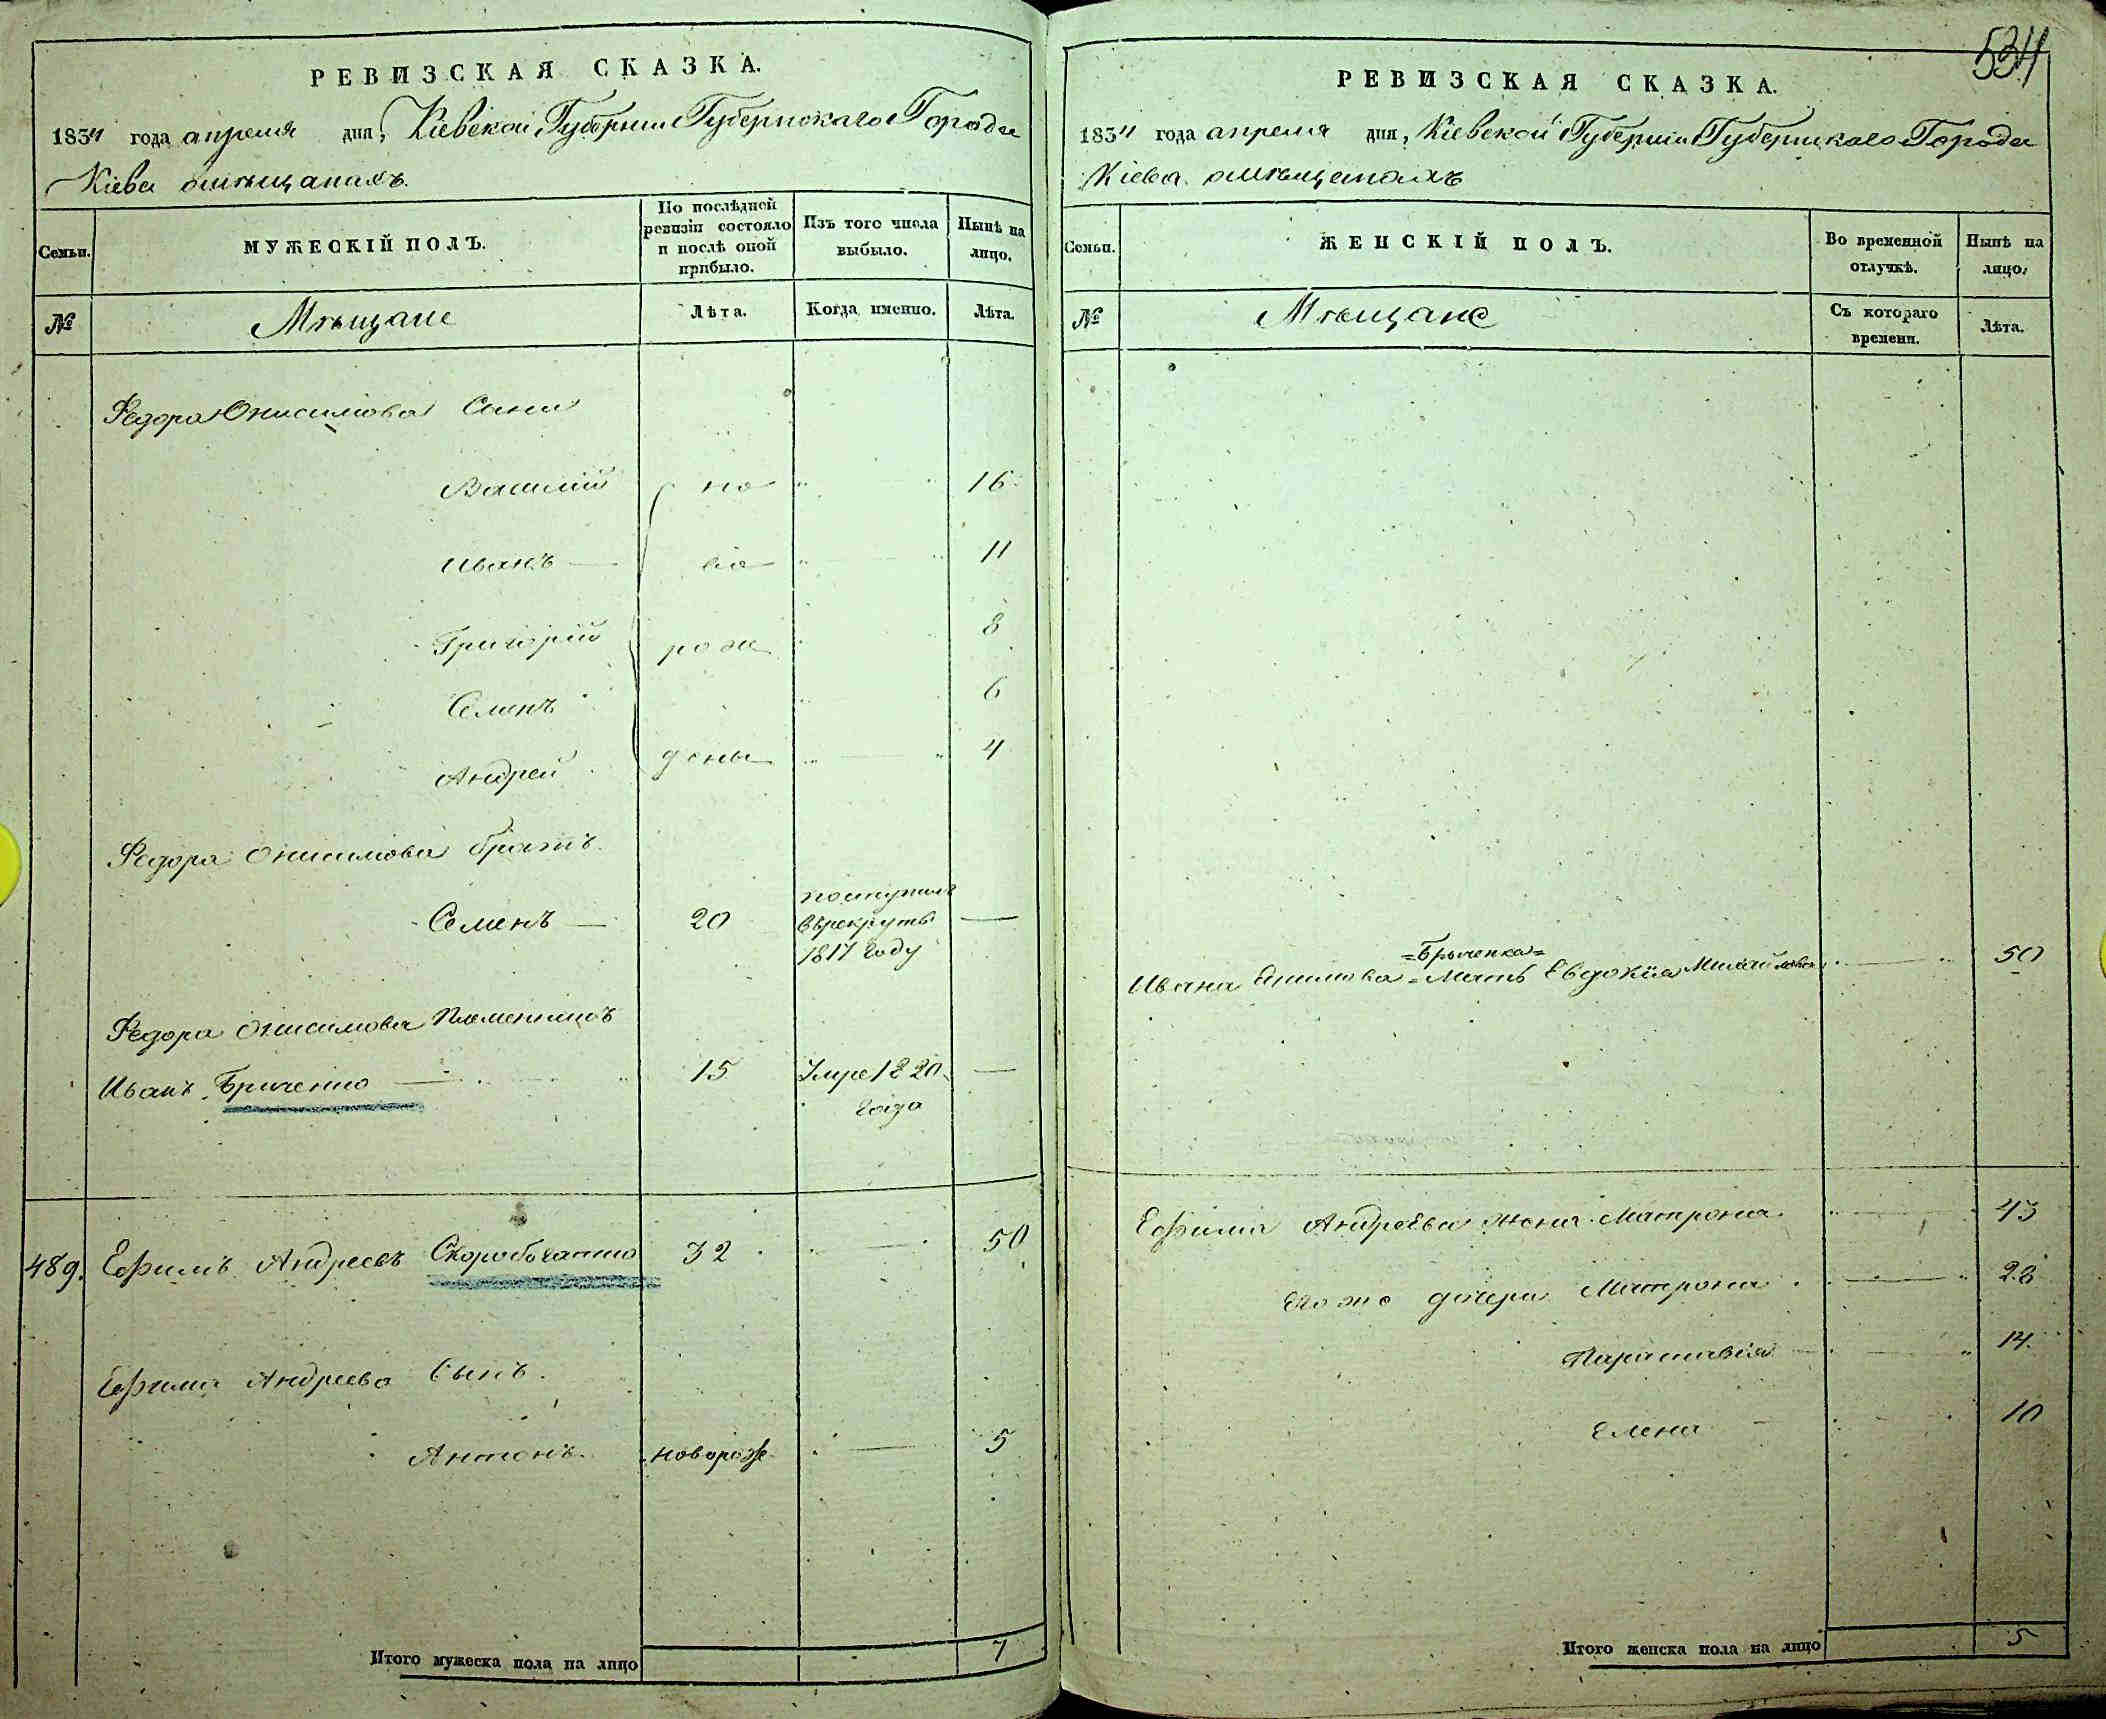 РЕВИЗСКАЯ СКАЗКА.
1834 года апреля дня, Кіевской Губерніи Губернскаго Города
Кіева о мѣщанахъ.
Семьи.
МУЖЕСКІЙ ПОЛЪ.
По послѣдней ревизіи состояло и послѣ оной прибыло.
Изъ того числа выбыло.
Нынѣ на лицо.
№
Мѣщане
Лѣта.
Когда именно.
Лѣта.
Федора Онисимова Сыны
Василій но 16
Иванъ во 11
Григорій рож 8
Семенъ 6
Андрей дены 4
Федора Онисимова братъ
Семенъ 20 поступилъ в рекруты 1817 году
Федора Онисимова Племянникъ
Иванъ Бриченко 15 Умре 1820 года
489. Ефимъ Андреевъ Скоробочатно 32 50
Ефима Андреева Сынъ.
Антонъ новорож 5
Итого мужеска пола на лицо 7
534
РЕВИЗСКАЯ СКАЗКА.
1834 года апреля дня, Кіевской Губерніи Губернскаго Города
Кіева о мѣщанахъ
Семьи.
ЖЕНСКІЙ ПОЛЪ.
Во временной отлучкѣ.
Нынѣ на лицо.
№
Мѣщане
Съ котораго времени.
Лѣта.
=Бриченка=
Ивана = Мать Евдокія Михайлова 50
Ефима Андреева жена Матрона 43
Его же дочери Матрона 28
Параскавія 14
Елена 10
Итого женска пола на лицо 5